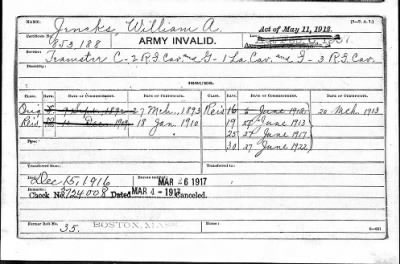 Name: Jencks, William A. (3—F. A. 7.)
Certificate No. 853188 ARMY INVALID. Act of May 11, 1912.
Service: Teamster C-2 R.I. Cav. and G-1 La. Cav. and G-3 R.I. Cav.
Disability:
Class. Rate. Date of Commencement. Date of Certificate. Class. Rate. Date of Commencement. Date of Certificate.
Orig 7 Mch., 1893 Reis 16 5 June 1912 20 Mch. 1913
Reis 18 Jan. 1910 19 27 June 1913
25 27 June 1917
30 27 June 1922
Transferred from
Dec 15, 1916 MAR 26 1917
Check No. 2724008 Dated MAR 4 - 1917 Canceled.
Former Roll No. Home:
35. BOSTON, MASS